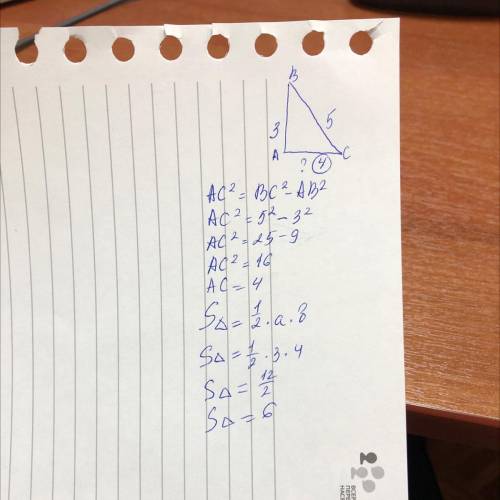 B
3
5
A
C
? 4
AC² = BC² - AB²
AC² = 5² - 3²
AC² = 25 - 9
AC² = 16
AC = 4
S△ = 1/2 · a · b
S△ = 1/2 · 3 · 4
S△ = 12/2
S△ = 6